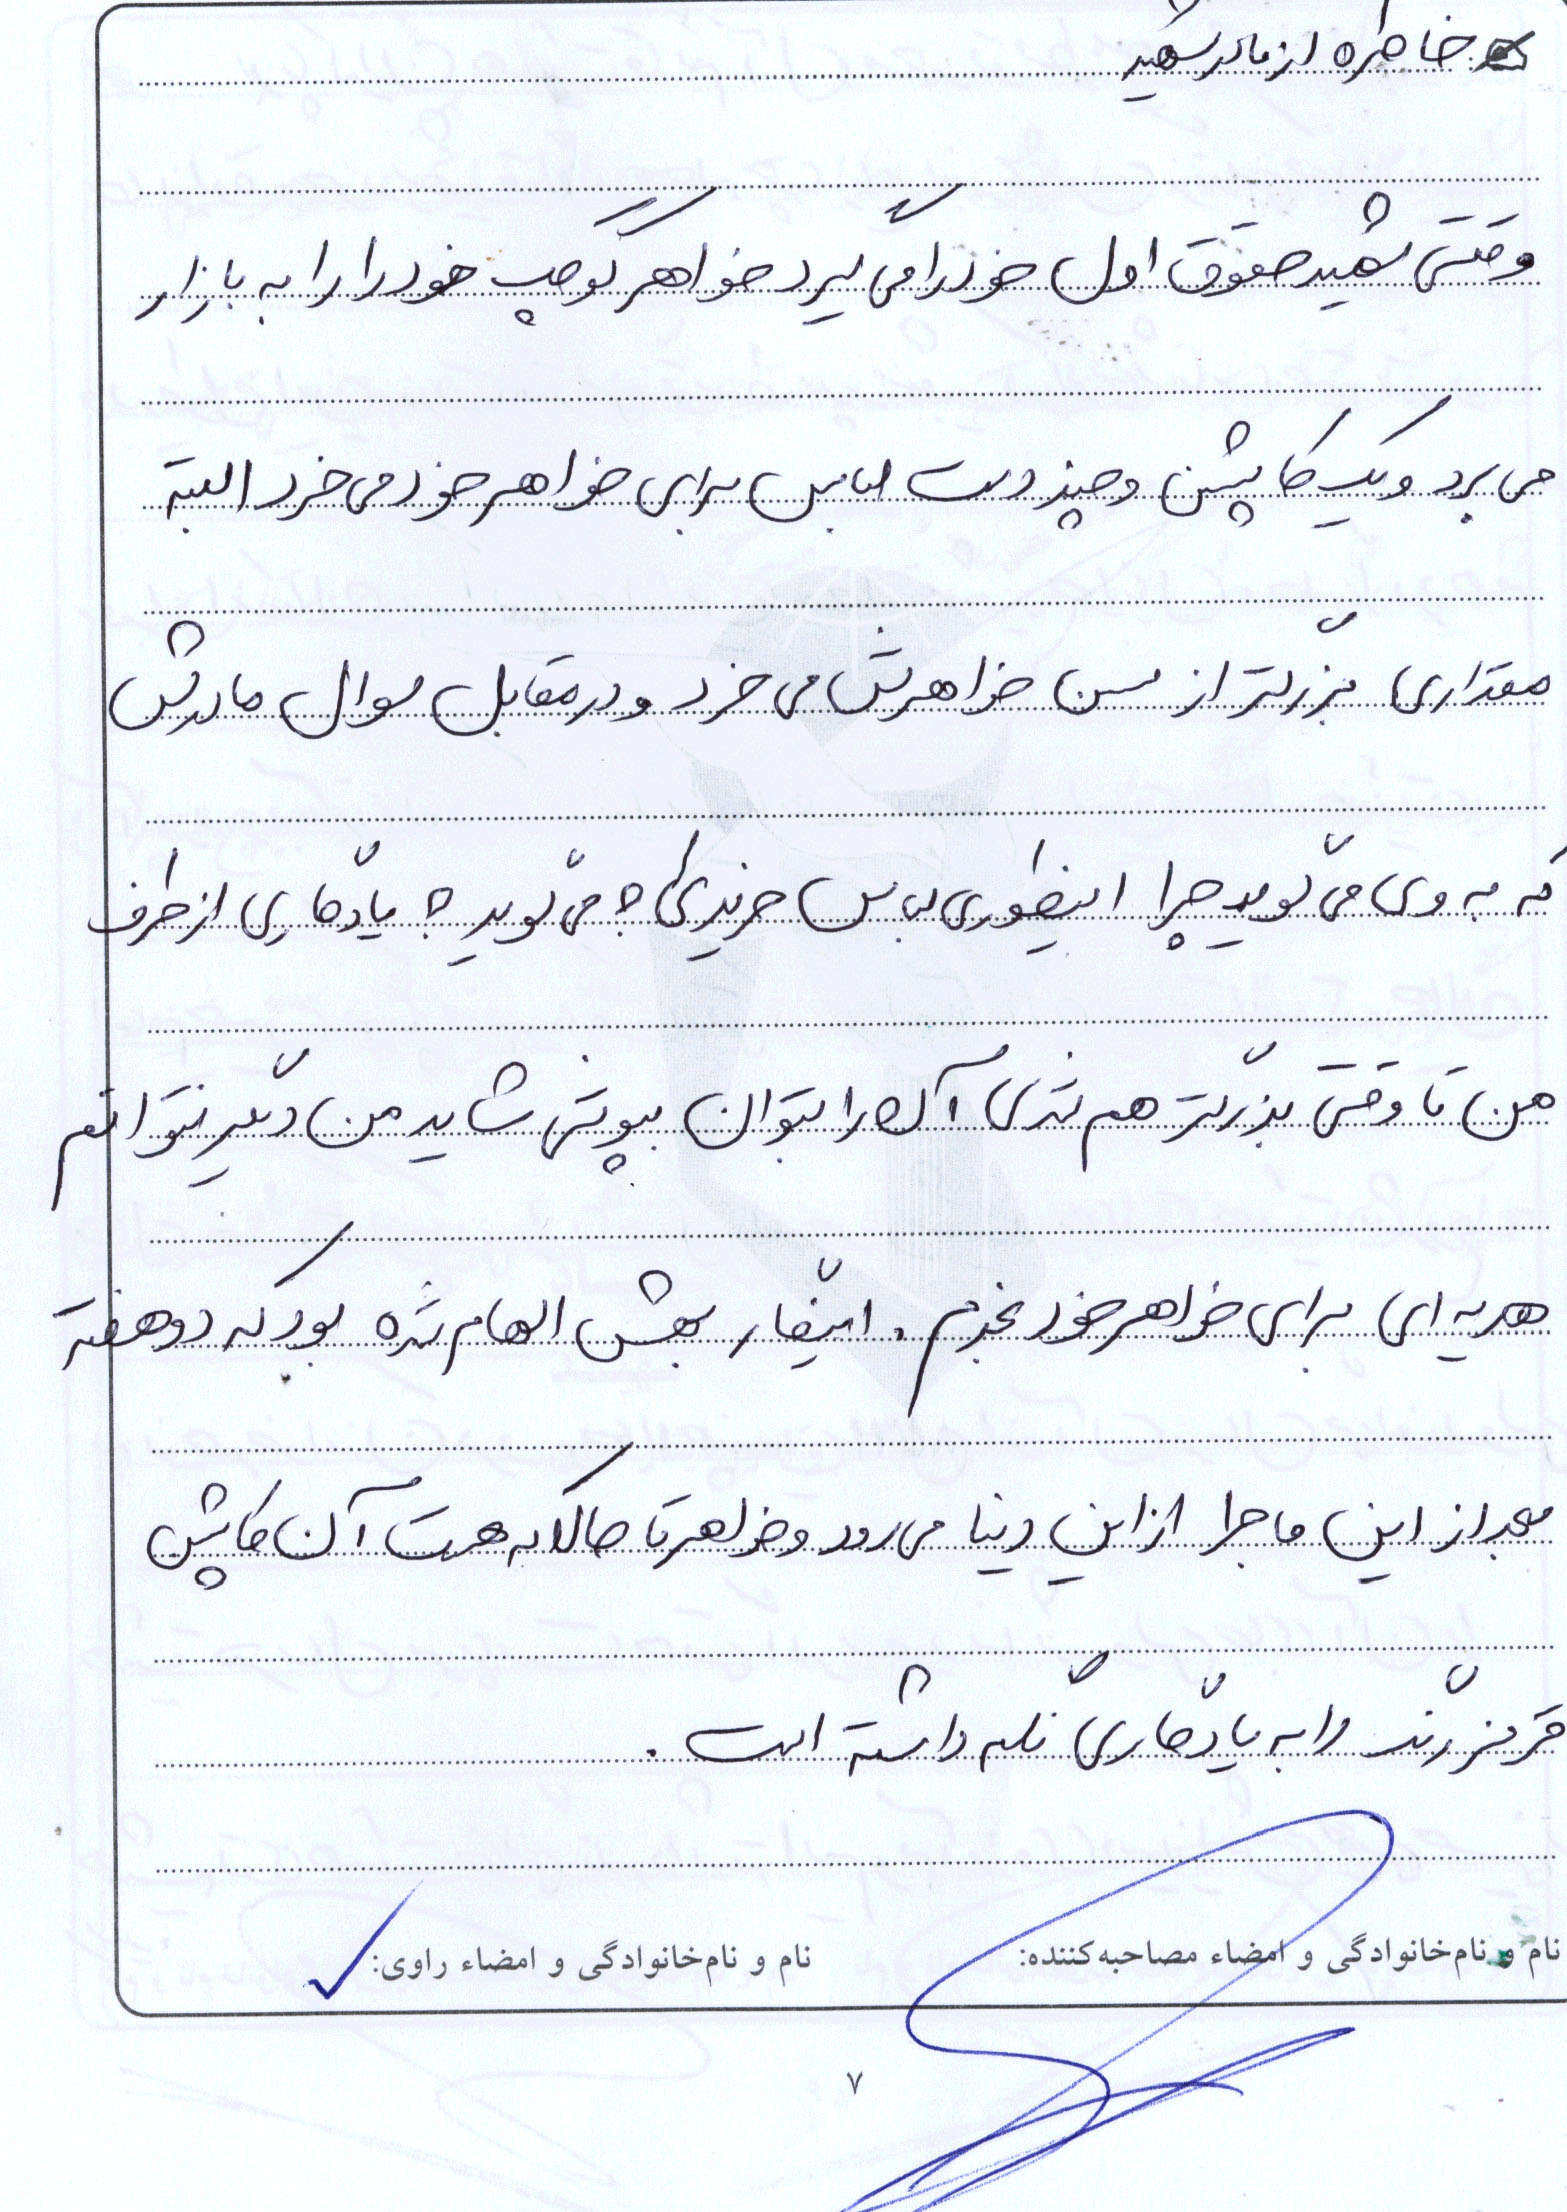 خاطره از مادر شهید
وقتی شهید حقوق اول خود را می گیرد خواهر کوچک خود را را به بازار
می برد و یک کاپشن و چند دست لباس برای خواهر خود می خرد البته
مقداری بزرگتر از سن خواهرش می خرد و در مقابل سوال مادرش
که به وی می گوید چرا اینطوری لباس خریدی؟ می گوید: یادگاری از طرف
من تا وقتی بزرگتر هم شدی آن را بتوان بپوشی شاید من دیگر نتوانم
هدیه ای برای خواهر خود بخرم. انیگار بهش الهام شده بود که دو هفته
بعد از این ماجرا از این دنیا می رود و خواهر تا حالا که هست آن کاپشن
قرمز رند را به یادگاری نگه داشته است.
نام و نام‌خانوادگی و امضاء مصاحبه‌کننده: نام و نام‌خانوادگی و امضاء راوی:
۷